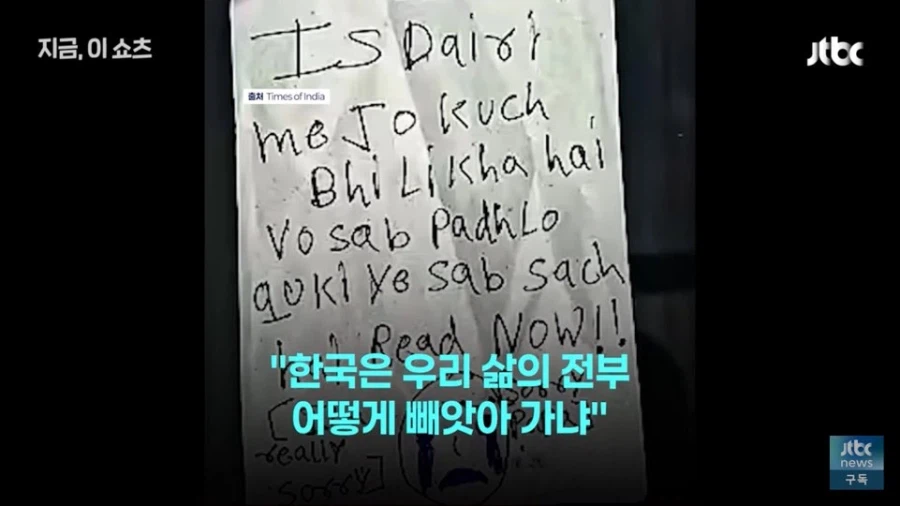 지금, 이 쇼츠
jtbc
출처 Times of India
Is Dairi
me Jo kuch
Bhi Likha hai
Vo sab Padh Lo
quki ye sab sach
Read NOW!!
"한국은 우리 삶의 전부
어떻게 빼앗아 가냐"
sorry
really
sorry]
jtbc
news
구독